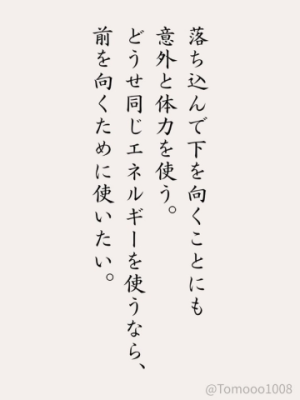 落ち込んで下を向くことにも
意外と体力を使う。
どうせ同じエネルギーを使うなら、
前を向くために使いたい。
@Tomooo1008